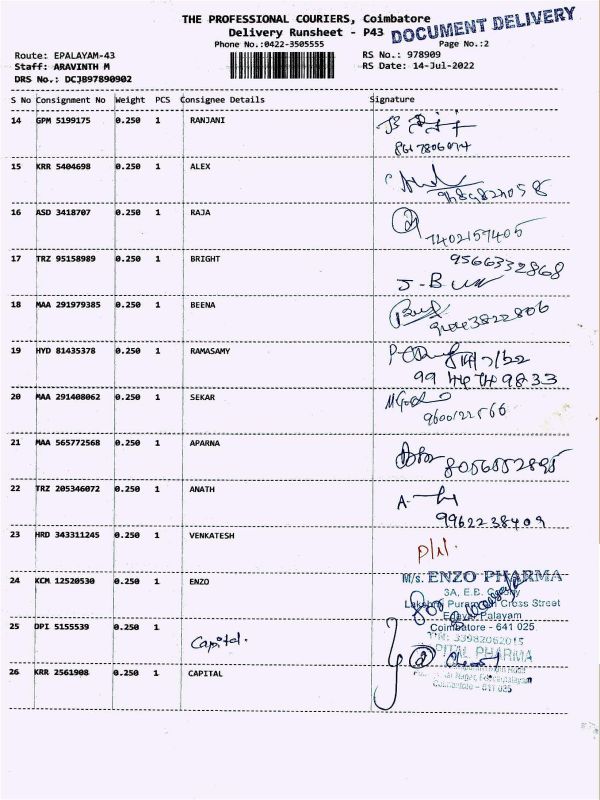 THE PROFESSIONAL COURIERS, Coimbatore
DOCUMENT DELIVERY
Delivery Runsheet - P43
Phone No.:0422-3505555
Page No.:2
Route: EPALAYAM-43
RS No.: 978909
Staff: ARAVINTH M
RS Date: 14-Jul-2022
DRS No.: DCJB97890902
S No Consignment No Weight PCS Consignee Details Signature
14 GPM 5199175 0.250 1 RANJANI
15 KRR 5404698 0.250 1 ALEX
16 ASD 3418707 0.250 1 RAJA
7402157405
17 TRZ 95158989 0.250 1 BRIGHT 9566332868
18 MAA 291979385 0.250 1 BEENA
19 HYD 81435378 0.250 1 RAMASAMY
14/7/22
99 44 74 9833
20 MAA 291408062 0.250 1 SEKAR
21 MAA 565772568 0.250 1 APARNA
22 TRZ 205346072 0.250 1 ANATH
9962238409
23 HRD 343311245 0.250 1 VENKATESH
24 KCM 12520530 0.250 1 ENZO
M/s. ENZO PHARMA
3A, E.B. Colony
Cross Street
Coimbatore - 641 025
25 DPI 5155539 0.250 1 Capital.
26 KRR 2561908 0.250 1 CAPITAL
PITAL PHARMA
Coimbatore - 641 025